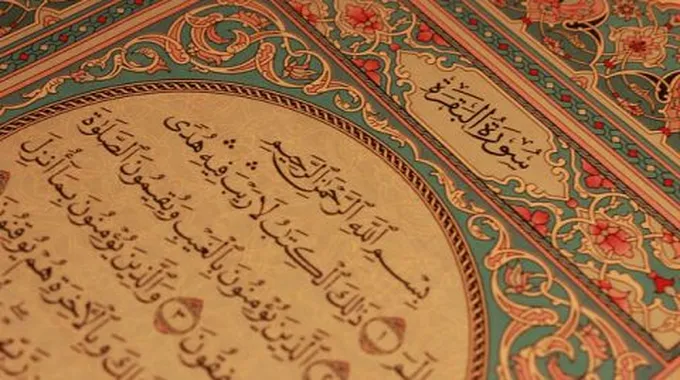 سُورَةُ الْبَقَرَةِ
بِسْمِ اللَّهِ الرَّحْمَٰنِ الرَّحِيمِ
الٓمٓ ١ ذَٰلِكَ الْكِتَٰبُ لَا رَيْبَ ۛ فِيهِ ۛ هُدًى
الَّذِينَ يُؤْمِنُونَ بِالْغَيْبِ وَيُقِيمُونَ الصَّلَوٰةَ
٣ وَالَّذِينَ يُؤْمِنُونَ بِمَآ أُنزِلَ
وَبِالْآخِرَةِ هُمْ